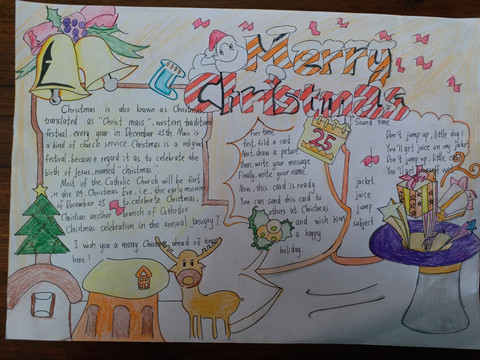 Merry
Christmas
Christmas is also known as Christmas
translated as "Christ mass", western traditional
festival, every year in December 25th. Mass is
a kind of church service. Christmas is a religious
festival, because regard it as to celebrate the
birth of Jesus, named "christmas".
Most of the Catholic Church will be first
in the 24 Christmas Eve, i.e., the early morning
of December 25 to celebrate Christmas,
Christian another branch of Catholic
Christmas celebration in the annual January 7.
I wish you a merry Christmas ahead of time
here!
Fun time
first, fold a card
Next, draw a picture
Then, write your message
Finally, write your name
Now, this card is ready
You can send this card to
others at Christmas
and wish him
a happy
holiday.
25
Sound time
Don't jump up, little dog!
You'll get juice on my jacket
Don't jump up, little
You'll get
jacket
juice
jump
subject